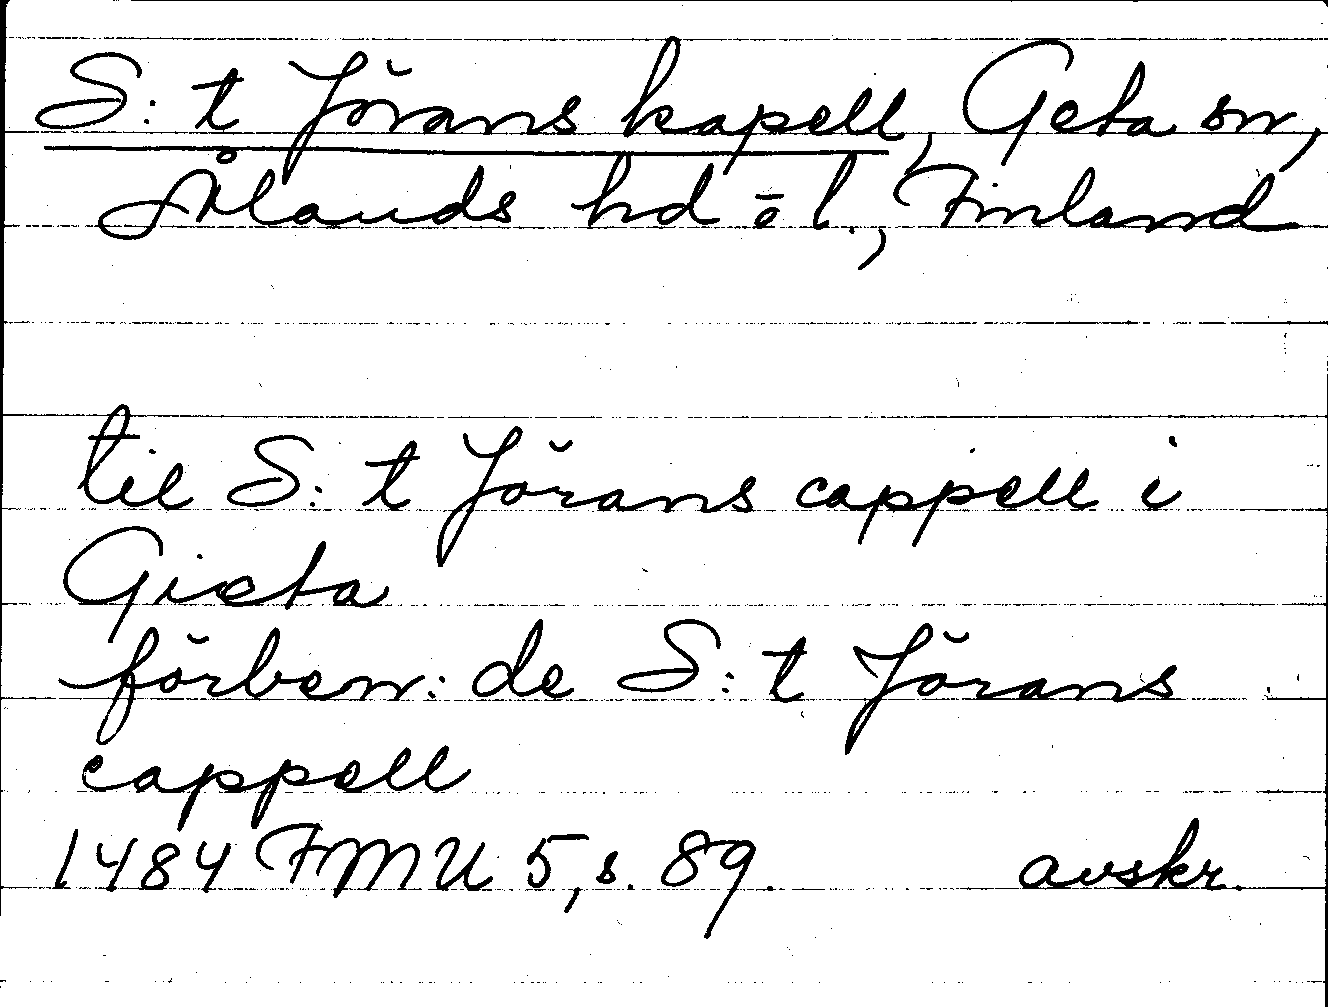 S:t Jörans kapell, Geta sn,
Ålands hd ō l., Finland
til S:t Jörans cappell i
Gieta
förben:de S:t Jörans
cappell
1484 FMU 5, s. 89. avskr.